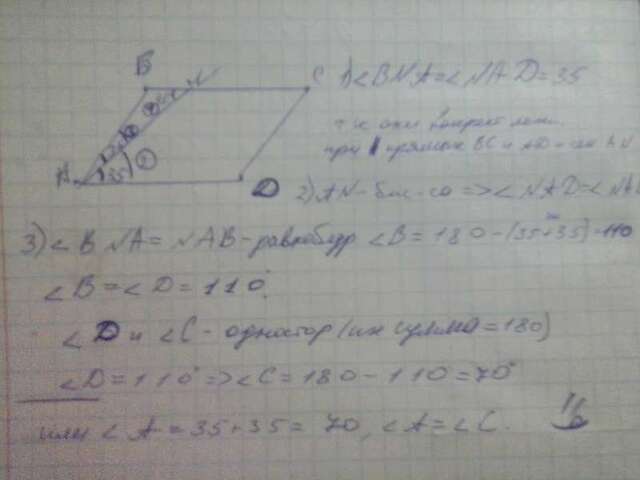 В
N
С
А
35
D
1) < BNA = < NAD = 35
т к они лежат
при прямых BC и AD и сек AN
2) AN - бис-са => < NAD = < NAB
3) < BNA = NAB - равнобедр < B = 180 - (35+35) = 110
< B = < D = 110°.
< D и < C - одностор (их сумма = 180)
< D = 110° => < C = 180 - 110 = 70°
или < A = 35 + 35 = 70, < A = < C.